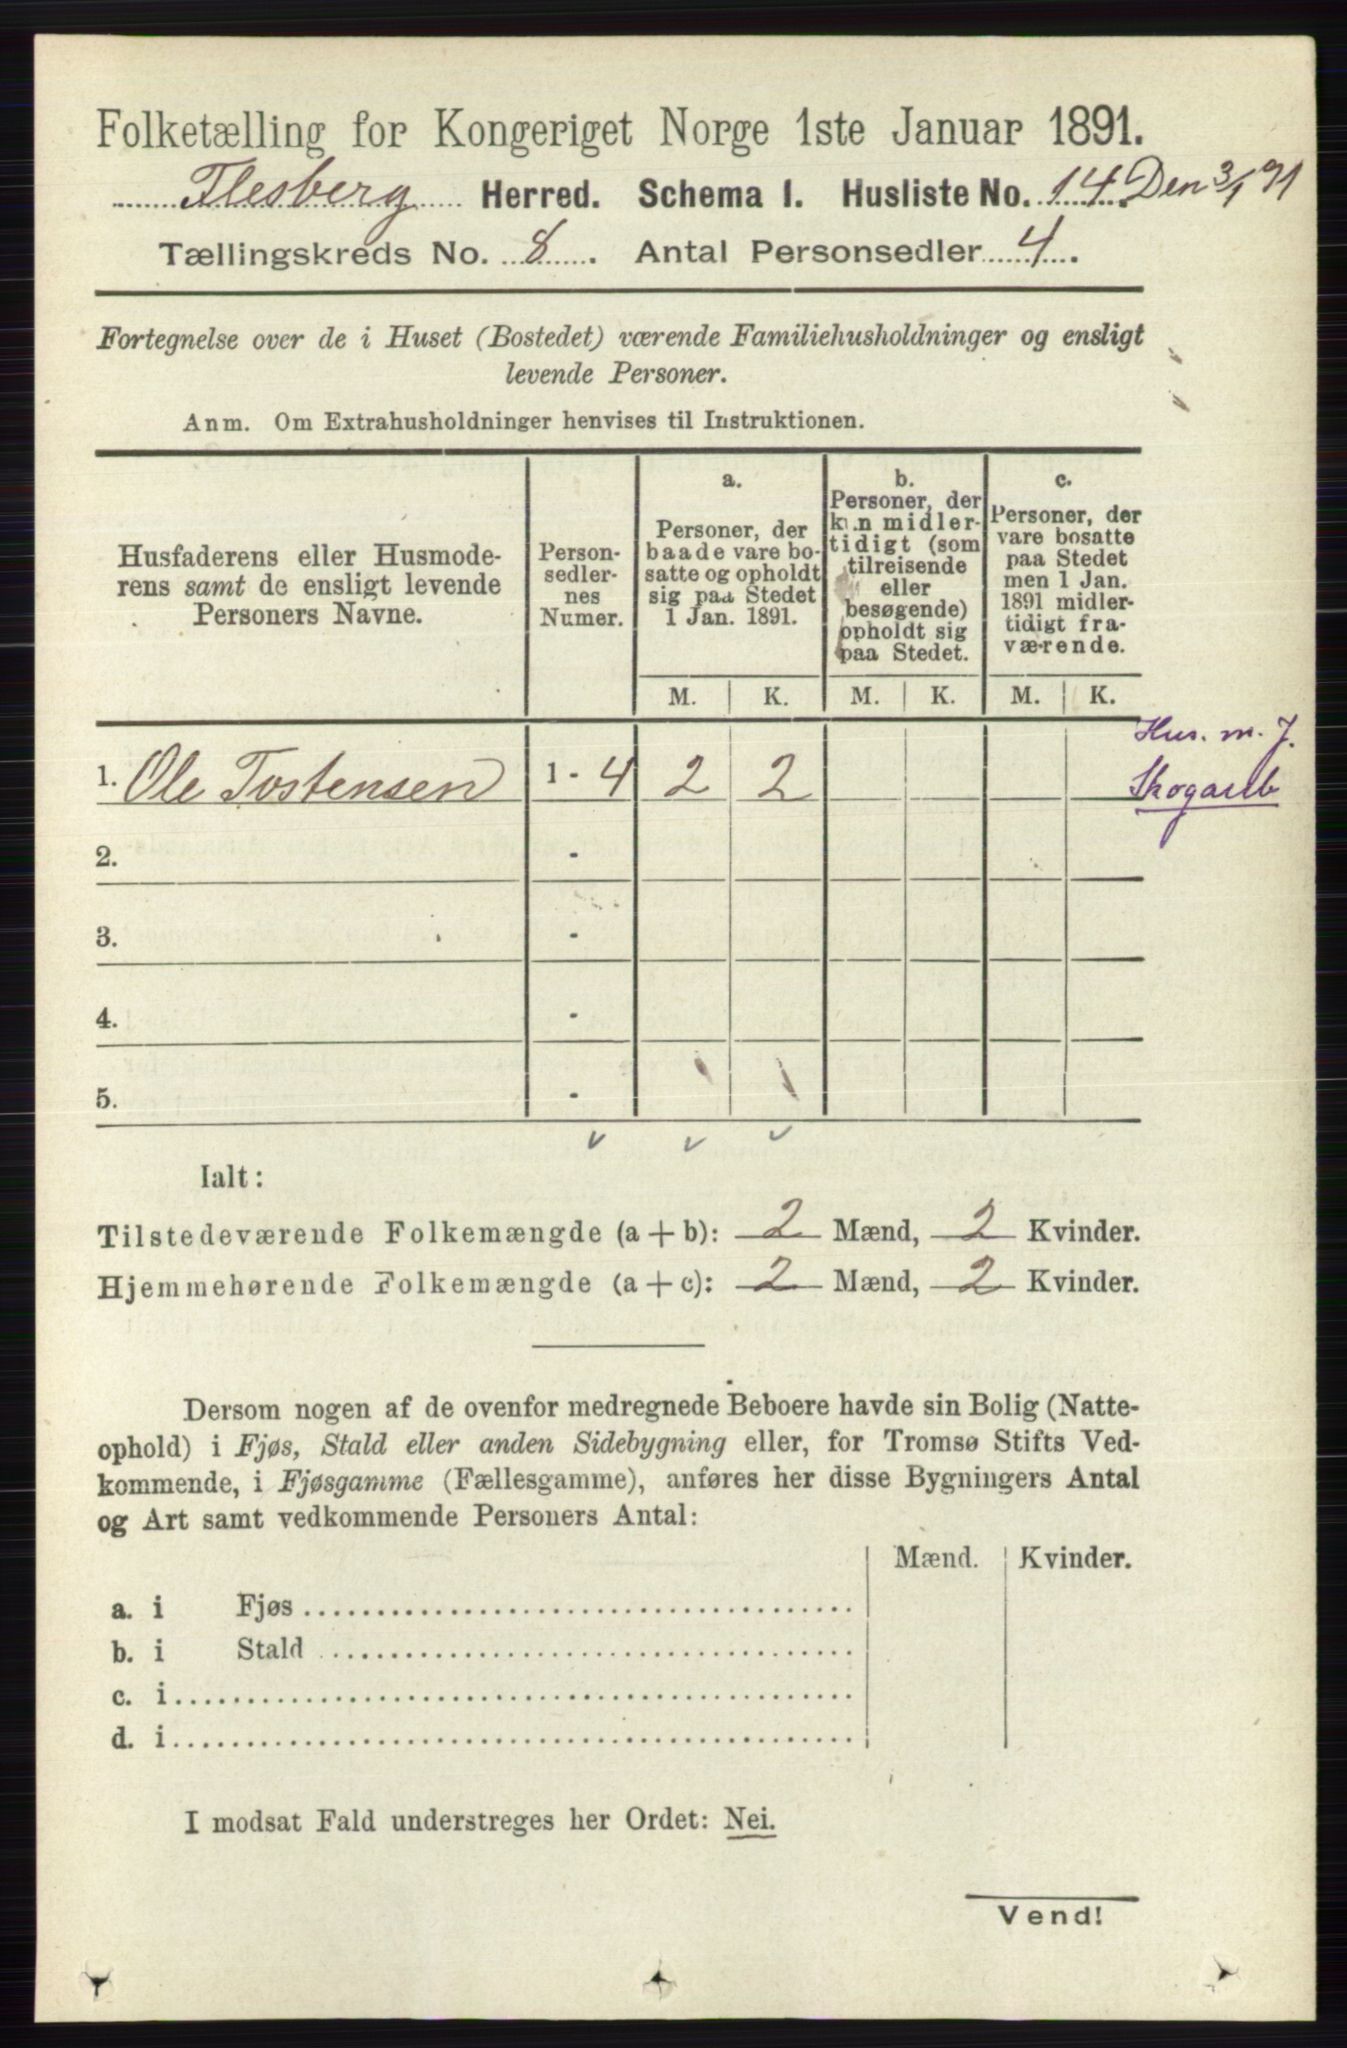 Folketælling for Kongeriget Norge 1ste Januar 1891.
Flesberg Herred. Schema I. Husliste No. 14 Den 3/1 91
Tællingskreds No. 8. Antal Personsedler 4.
Fortegnelse over de i Huset (Bostedet) værende Familiehusholdninger og ensligt
levende Personer.
Anm. Om Extrahusholdninger henvises til Instruktionen.
Husfaderens eller Husmode-
rens samt de ensligt levende
Personers Navne.
Person-
sedler-
nes
Numer.
a.
Personer, der
baade vare bo-
satte og opholdt
sig paa Stedet
1 Jan. 1891.
b.
Personer, der
kun midler-
tidigt (som
tilreisende
eller
besøgende)
opholdt sig
paa Stedet.
c.
Personer, der
vare bosatte
paa Stedet
men 1 Jan.
1891 midler-
tidigt fra-
værende.
M. K. M. K. M. K.
1. Ole Tostensen 1 - 4 2 2
Hus. m. J.
Skogarb
2. -
3. -
4. -
5. -
Ialt:
Tilstedeværende Folkemængde (a + b): 2 Mænd, 2 Kvinder.
Hjemmehørende Folkemængde (a + c): 2 Mænd, 2 Kvinder.
Dersom nogen af de ovenfor medregnede Beboere havde sin Bolig (Natte-
ophold) i Fjøs, Stald eller anden Sidebygning eller, for Tromsø Stifts Ved-
kommende, i Fjøsgamme (Fællesgamme), anføres her disse Bygningers Antal
og Art samt vedkommende Personers Antal:
Mænd. Kvinder.
a. i Fjøs
b. i Stald
c. i
d. i
I modsat Fald understreges her Ordet: Nei.
Vend!